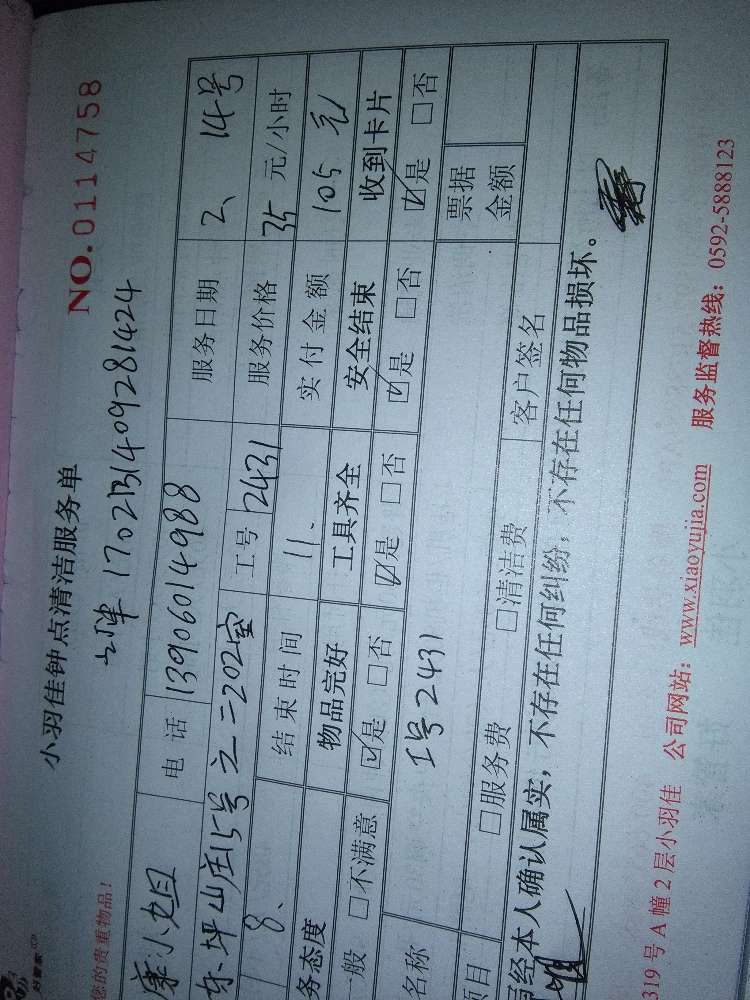 小羽佳钟点清洁服务单
NO.0114758
1702131409281424
您的贵重物品！
康小旭 电话 13906014988 服务日期 2、14号
东坪山庄15号之二202室 工号 2431 服务价格 35 元/小时
8、 结束时间 11、 实付金额 105元
务态度 物品完好 工具齐全 安全结束 收到卡片
一般 □不满意 ☑是 □否 ☑是 □否 ☑是 □否 ☑是 □否
名称 工号2431 票据金额
项目 □服务费 □清洁费 客户签名
经本人确认属实，不存在任何纠纷，不存在任何物品损坏。
319号A幢2层小羽佳 公司网站：www.xiaoyujia.com 服务监督热线：0592-5888123